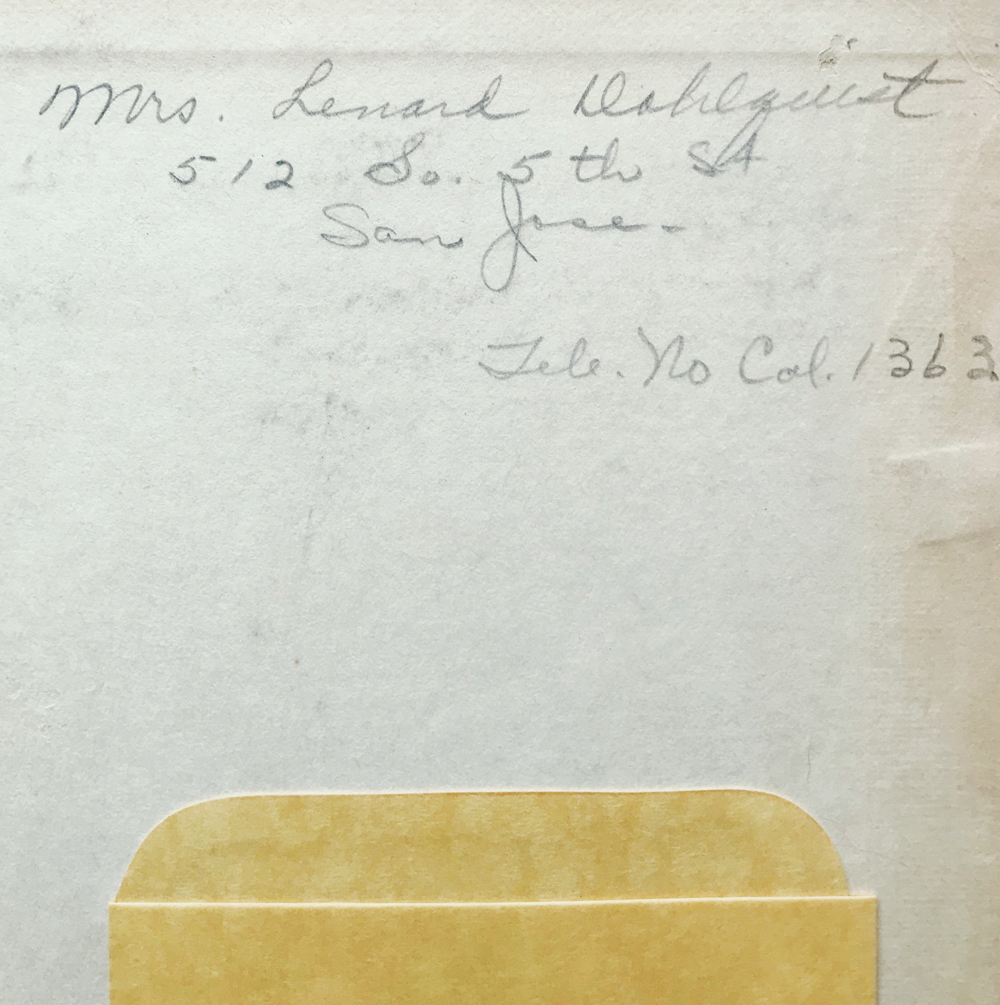 Mrs. Lenard Dahlquist
512 So. 5th St
San Jose.
Tele. No Col. 1363